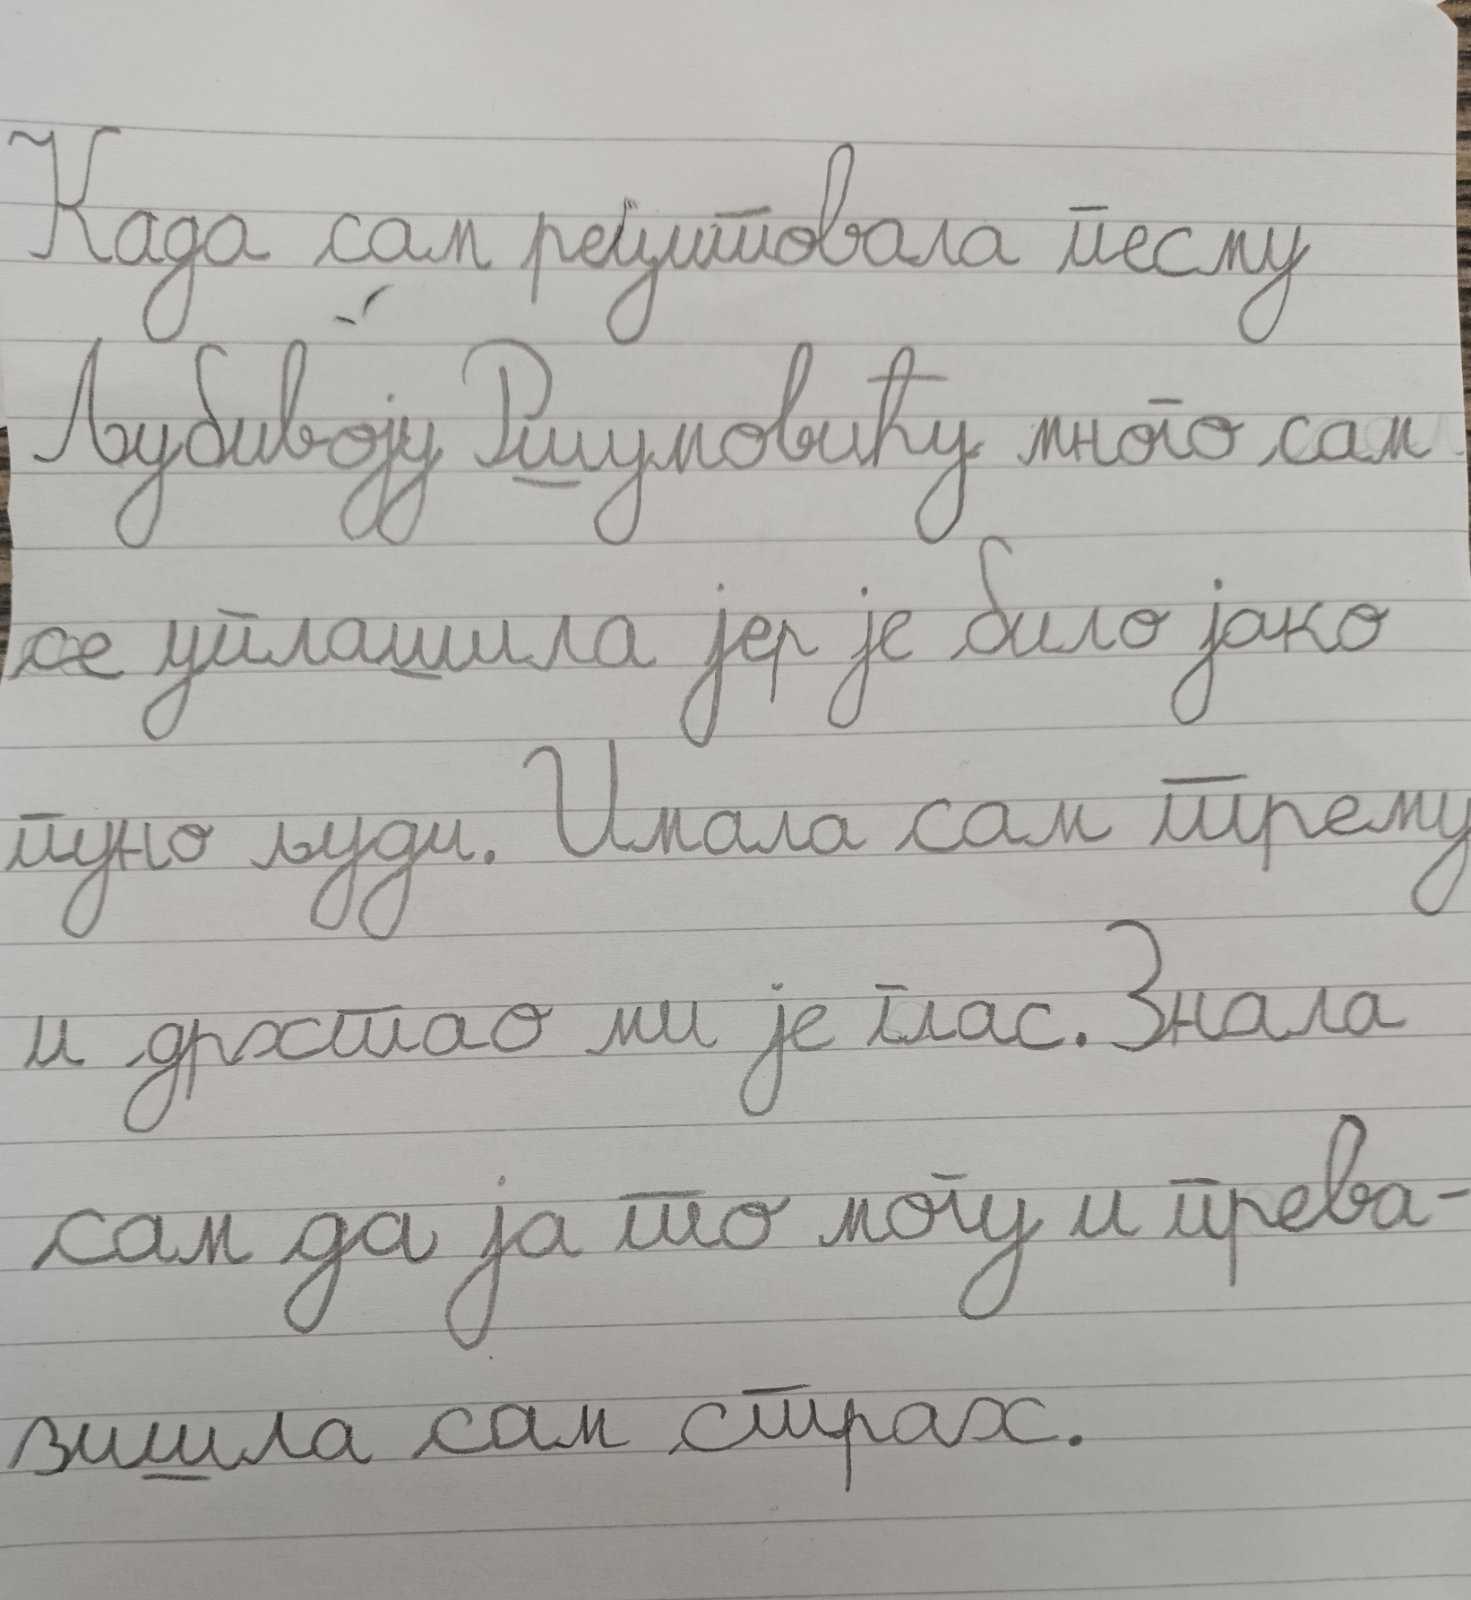 Када сам рецитовала песму
Љубивоју Ршумовићу много сам
се уплашила јер је било јако
пуно људи. Имала сам трему
и дрхтао ми је глас. Знала
сам да ја то могу и прева-
зишла сам страх.